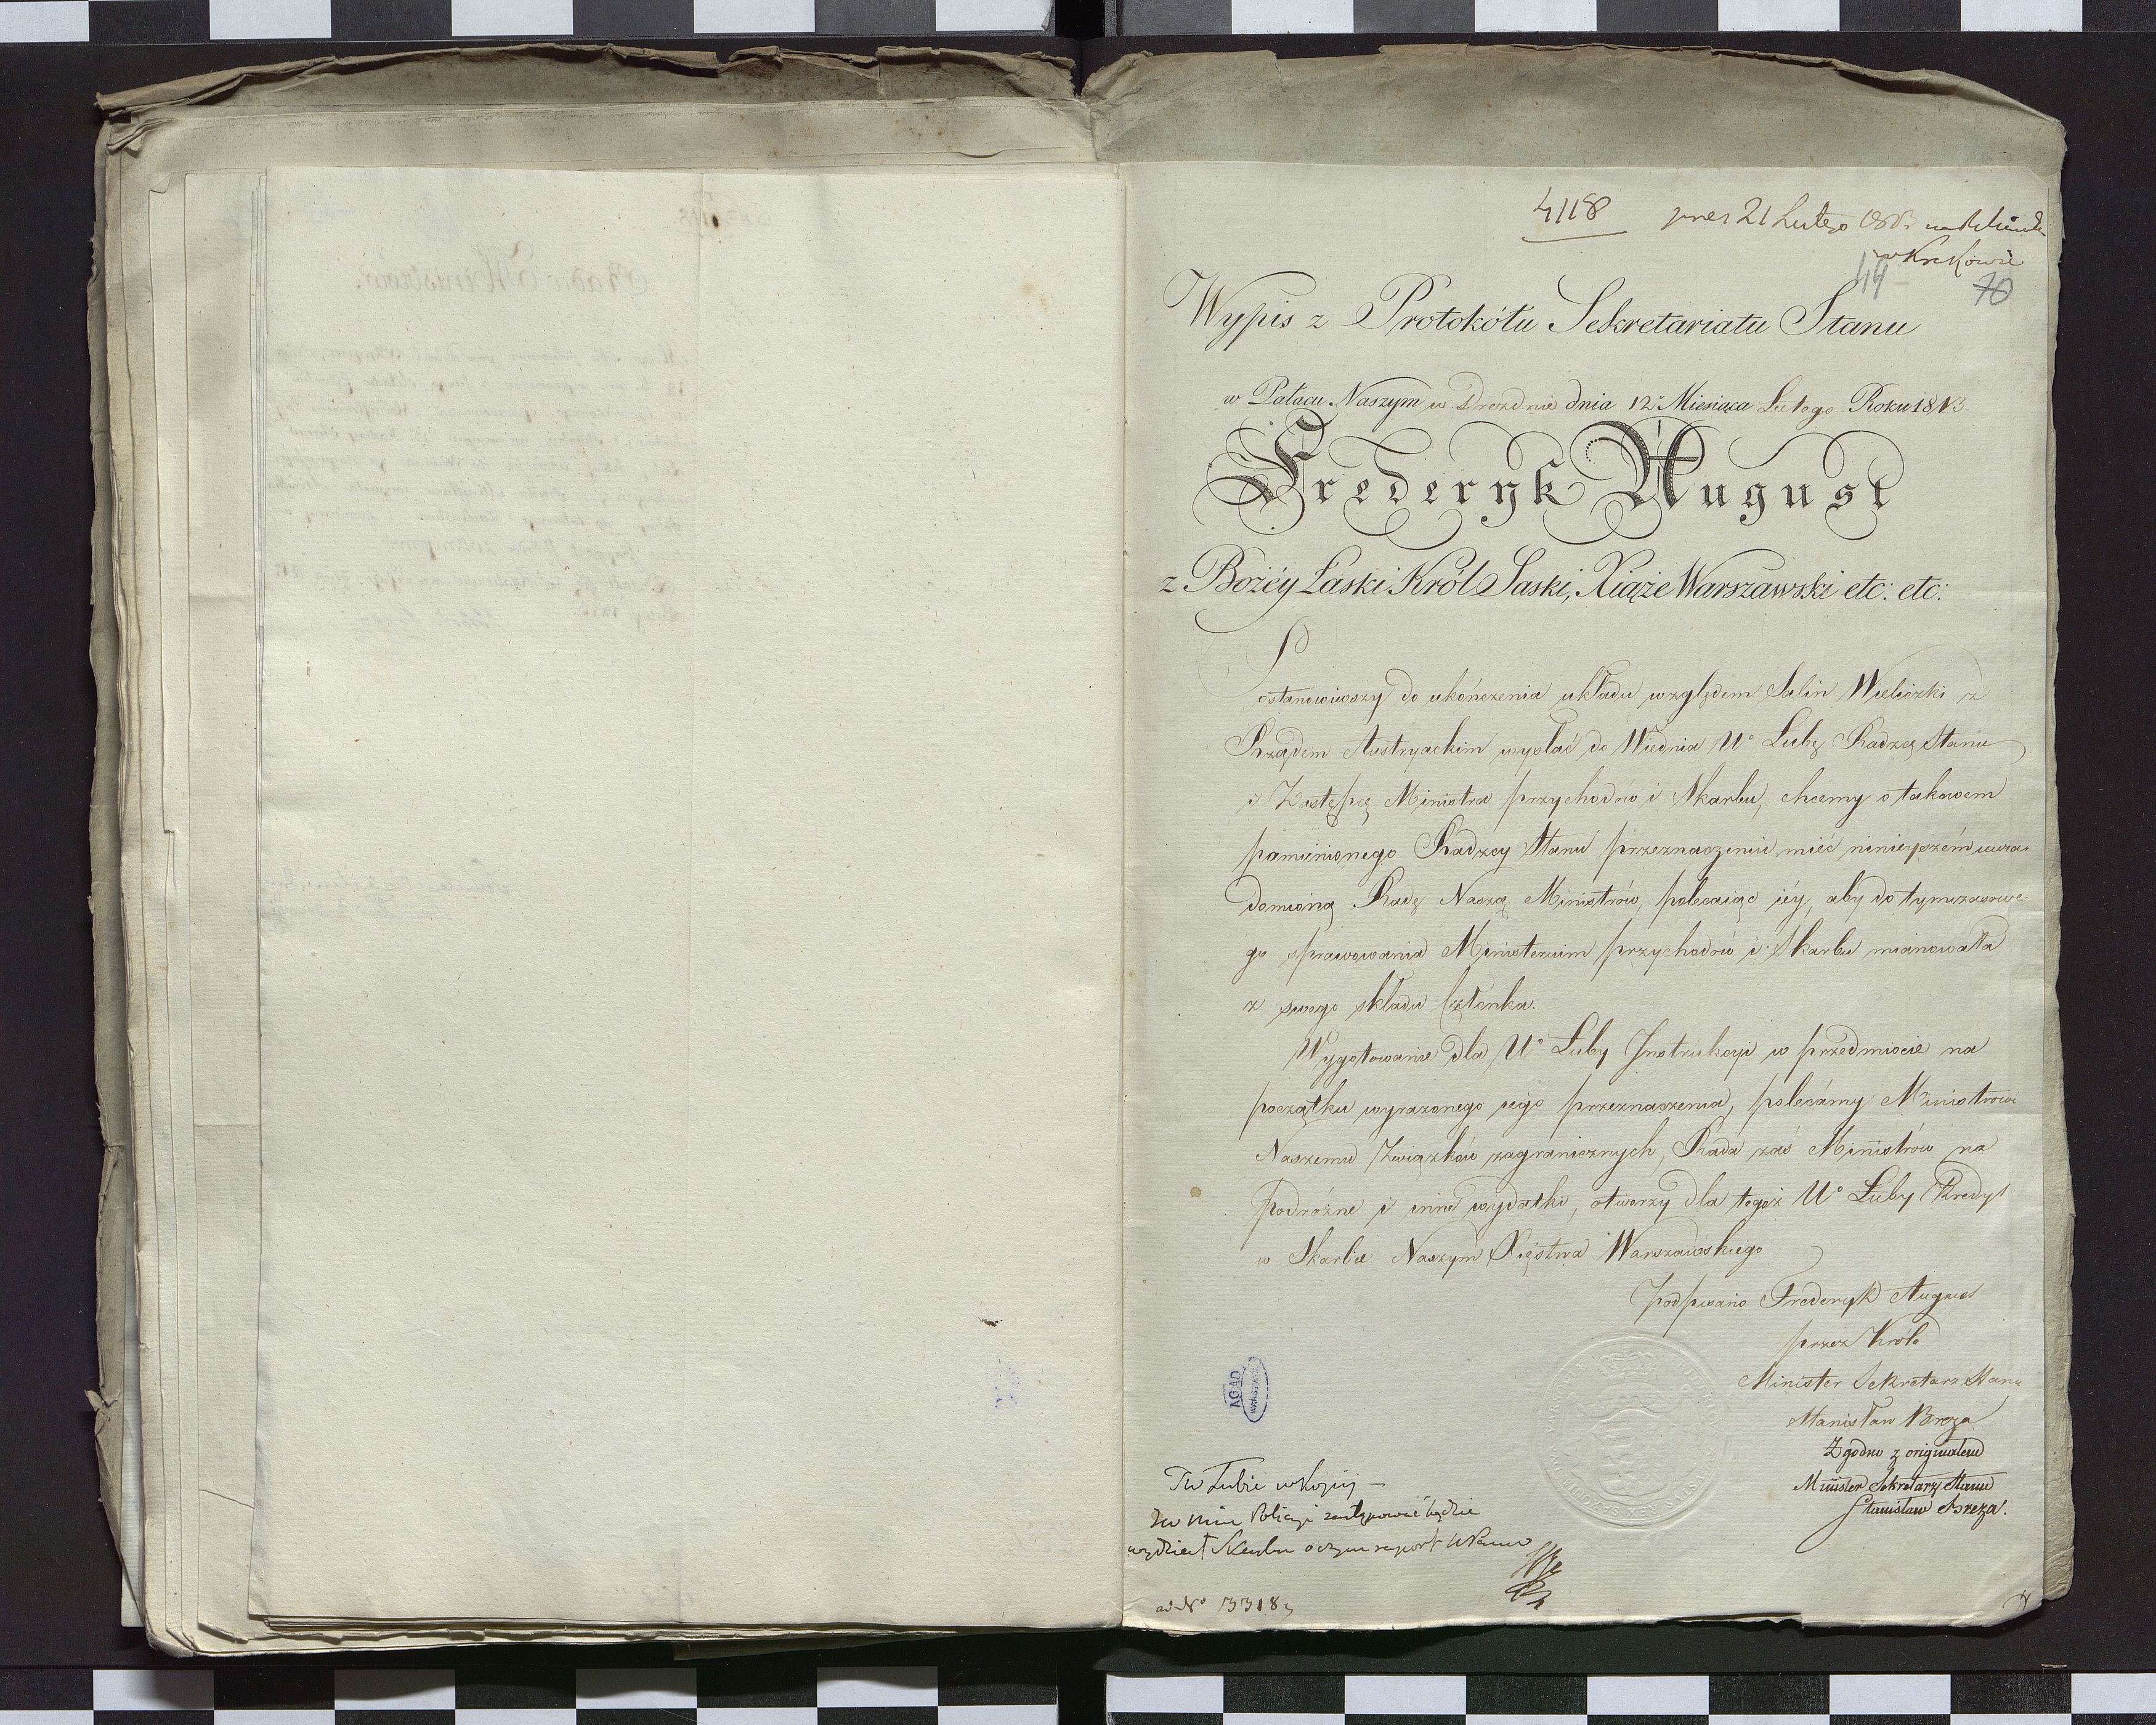 4118 pres 21 Lutego 1813
w Krakowie
44
70
Wypis z Protokółu Sekretariatu Stanu
w Pałacu Naszym w Dreznie dnia 12º Miesiąca Lutego Roku 1813.
Frederyk August
z Bożéy Łaski Król Saski, Xiąże Warszawski etc: etc:
Postanowiwszy do ukończenia układu względem Salin Wieliczki z
Rządem Austryackim wysłać do Wiednia Uº Łubę Radzcę Stanu
i Zastępcę Ministra przychodów i Skarbu, chcemy o takowem
pomienionego Radzcy Stanu przeznaczeniu mieć ninieyszém uwia-
domioną Radę Naszą Ministrów, polecaiąc iéy, aby do tymczasowe-
go sprawowania Ministerium przychodów i Skarbu mianowała
z swego składu Członka.
Wygotowanie dla Uº Łuby Instrukcyi w przedmiocie na
początku wyrażonego iego przeznaczenia, polecamy Ministrowi
Naszemu Związków zagranicznych, Rada zaś Ministrów na
podróżne i inne wydatki, otworzy dla tegoż Uº Łuby Kredyt
w Skarbie Naszym Xięstwa Warszawskiego
podpisano Frederyk August
przez Króla
Minister Sekretarz Stanu
Stanisław Breza
Zgodno z originałem
Minister Sekretarz Stanu
Stanisław Breza.
AGAD
WARSZAWA
JW Łubie w kopij —
JW Min Policyi zastępować będzie
wydział Skarbu o czym raport
ad Nº 3318